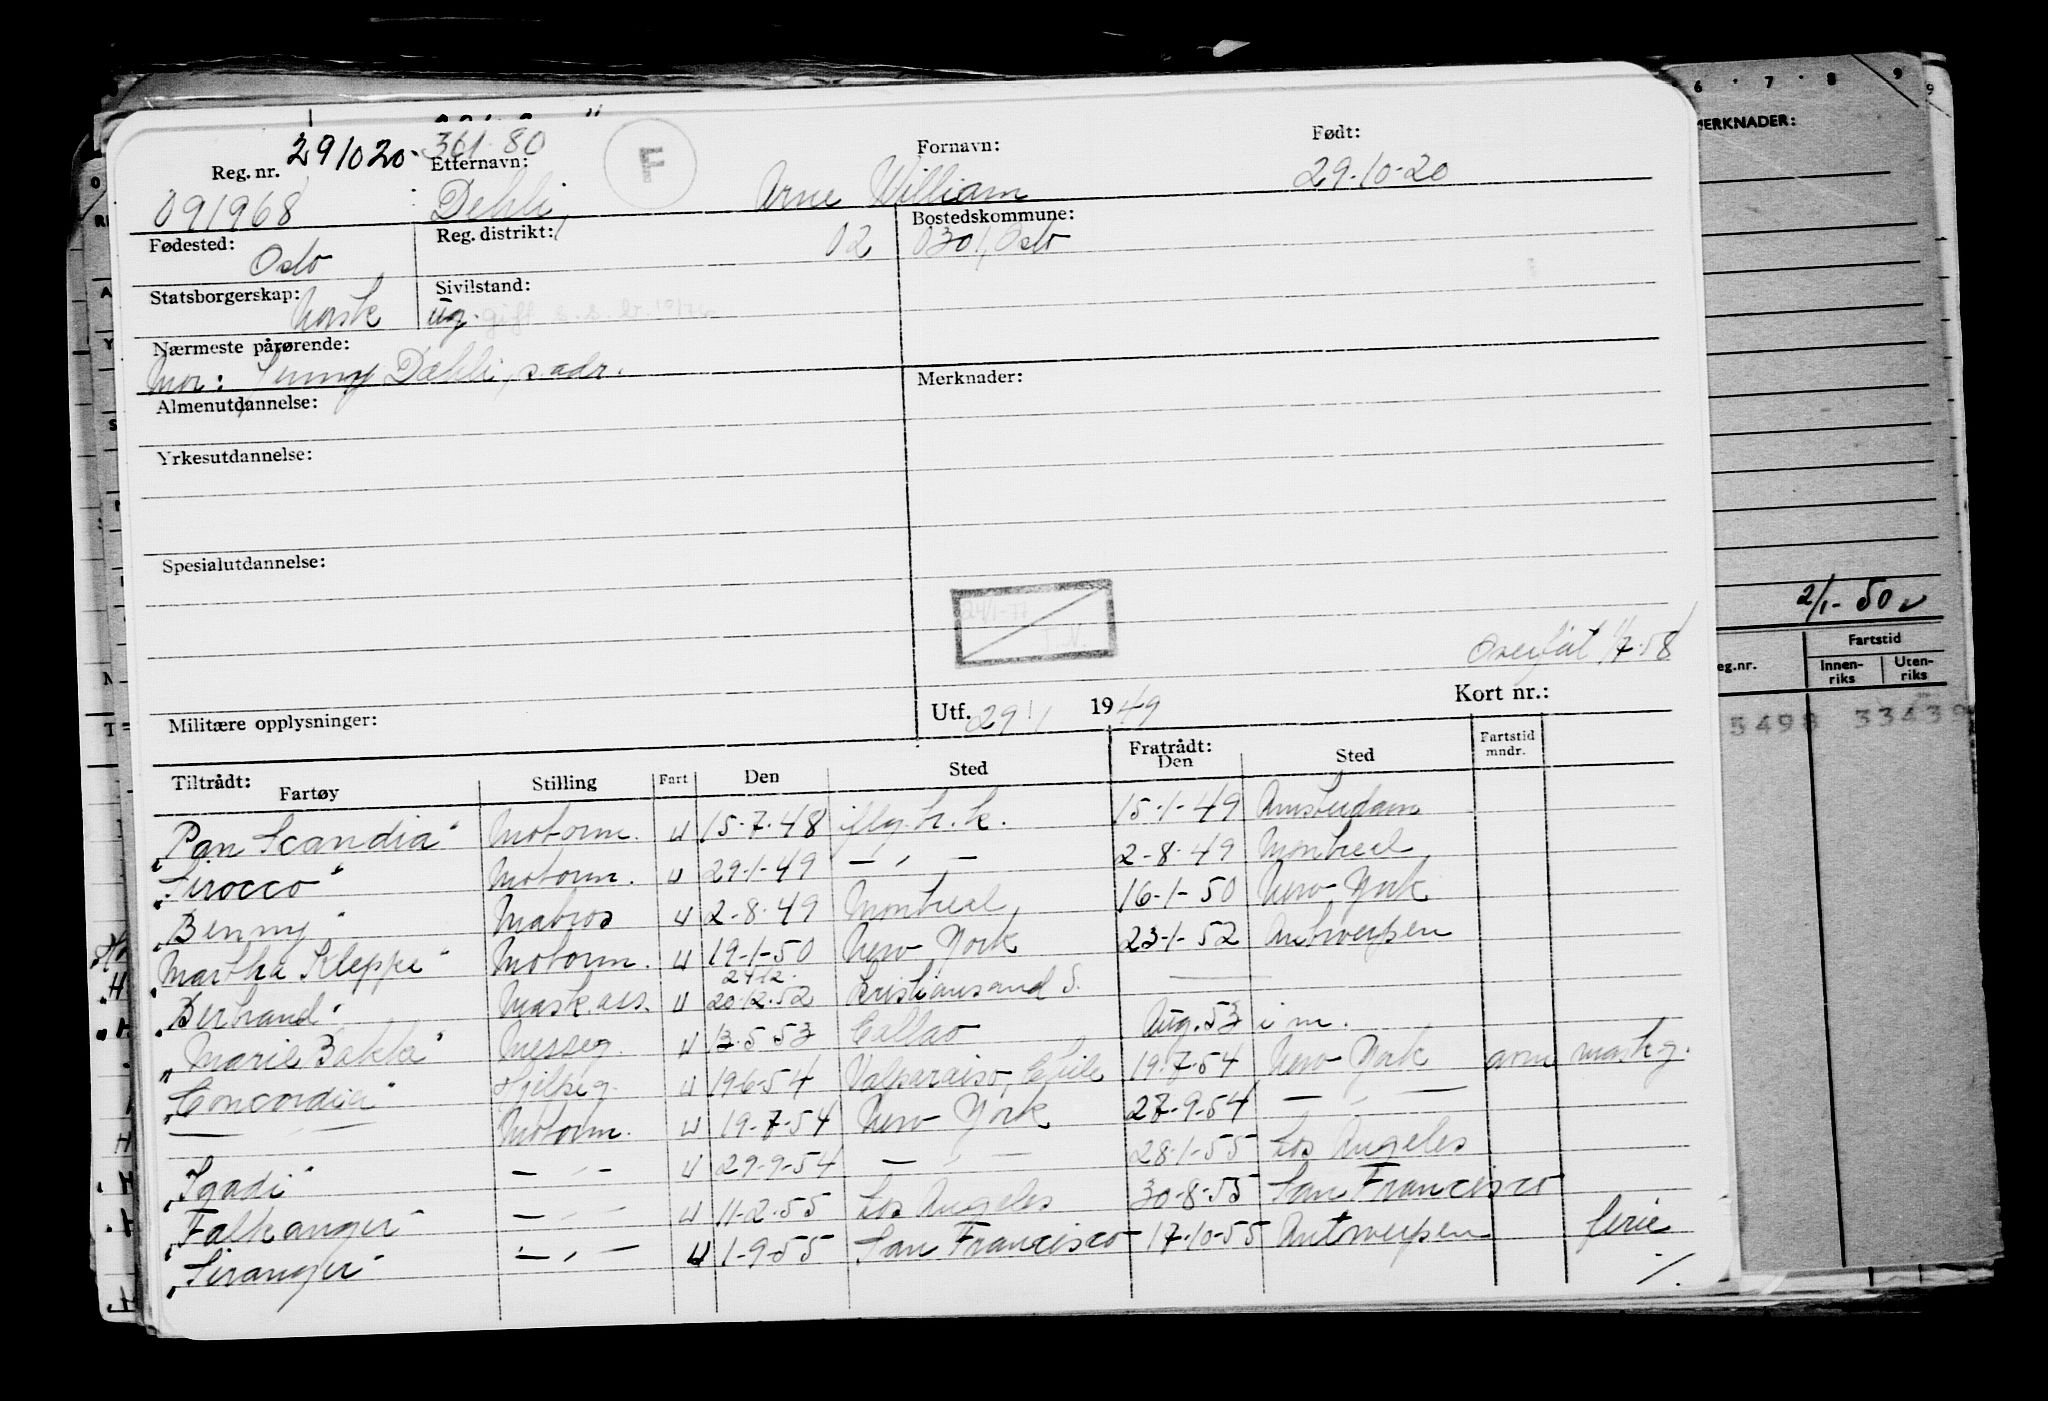 291020-36180
Reg. nr. Etternavn: F Fornavn: Født:
091968 Dehli, Arne William 29-10-20
Fødested: Reg. distrikt: Bostedskommune:
Oslo 02 0301, Oslo
Statsborgerskap: Sivilstand:
Norsk ug. gift
Nærmeste pårørende:
Mor: Jenny Dæhli, s. adr. Merknader:
Almenutdannelse:
Yrkesutdannelse:
Spesialutdannelse:
24/1-77
Overført 1/7-58
Militære opplysninger: Utf. 29/1 1949 Kort nr.:
Tiltrådt: Fratrådt:
Fartøy Stilling Fart Den Sted Den Sted Fartstid mndr.
"Pan Scandia" Motorm. U 15-7-48 15-1-49 Amsterdam
"Sirocco" Motorm. U 29-1-49 — " — 2-8-49 Montreal
"Benny" Matros U 2-8-49 Montreal 16-1-50 New York
"Martha Kleppe" Motorm. U 19-1-50 New York 23-1-52 Antwerpen
24-12.
"Bertrand" Mask.ass. U 20-12-52 Kristiansand S. —
"Marie Bakke" Messeg. U 13-5-53 Callao Aug. 53 i m.
"Concordia" Hjelpeg. U 19-6-54 Valparaiso, Chile 19-7-54 New York
— " — Motorm. U 19-7-54 New York 27-9-54 — " —
"Igadi" — " — U 29-9-54 — " — 28-1-55 Los Angeles
"Falkanger" — " — U 11-2-55 Los Angeles 30-8-55 San Francisco
"Siranger" — " — U 1-9-55 San Francisco 17-10-55 Antwerpen ferie
6 7 8 9
MERKNADER:
2/1-50
Fartstid
eg.nr. Innen-riks Uten-riks
5498 33439